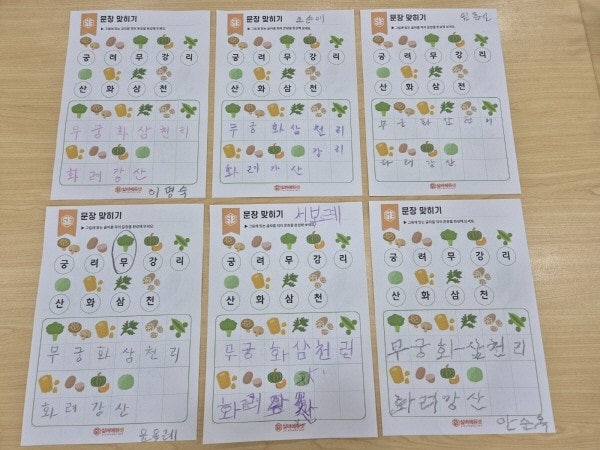 문장 맞히기
▶ 그림에 맞는 글자를 적어 문장을 완성해 보세요.
궁 려 무 강 리
산 화 삼 천
무 궁 화 삼 천 리
화 려 강 산
이명숙
문장 맞히기
▶ 그림에 맞는 글자를 적어 문장을 완성해 보세요.
궁 려 무 강 리
산 화 삼 천
무 궁 화 삼 천 리
화 려 가 산 강 리
문장 맞히기
▶ 그림에 맞는 글자를 적어 문장을 완성해 보세요.
궁 려 무 강 리
산 화 삼 천
무 궁 화 삼
려 강 산
문장 맞히기
▶ 그림에 맞는 글자를 적어 문장을 완성해 보세요.
궁 려 무 강 리
산 화 삼 천
무 궁 화 삼 천 리
화 려 강 산
문장 맞히기
서보계
▶ 그림에 맞는 글자를 적어 문장을 완성해 보세요.
궁 려 무 강 리
산 화 삼 천
무 궁 화 삼 천
화 려
문장 맞히기
▶ 그림에 맞는 글자를 적어 문장을 완성해 보세요.
궁 려 무 강 리
산 화 삼 천
무 궁 화 삼 천 리
화 려 강 산
안순옥